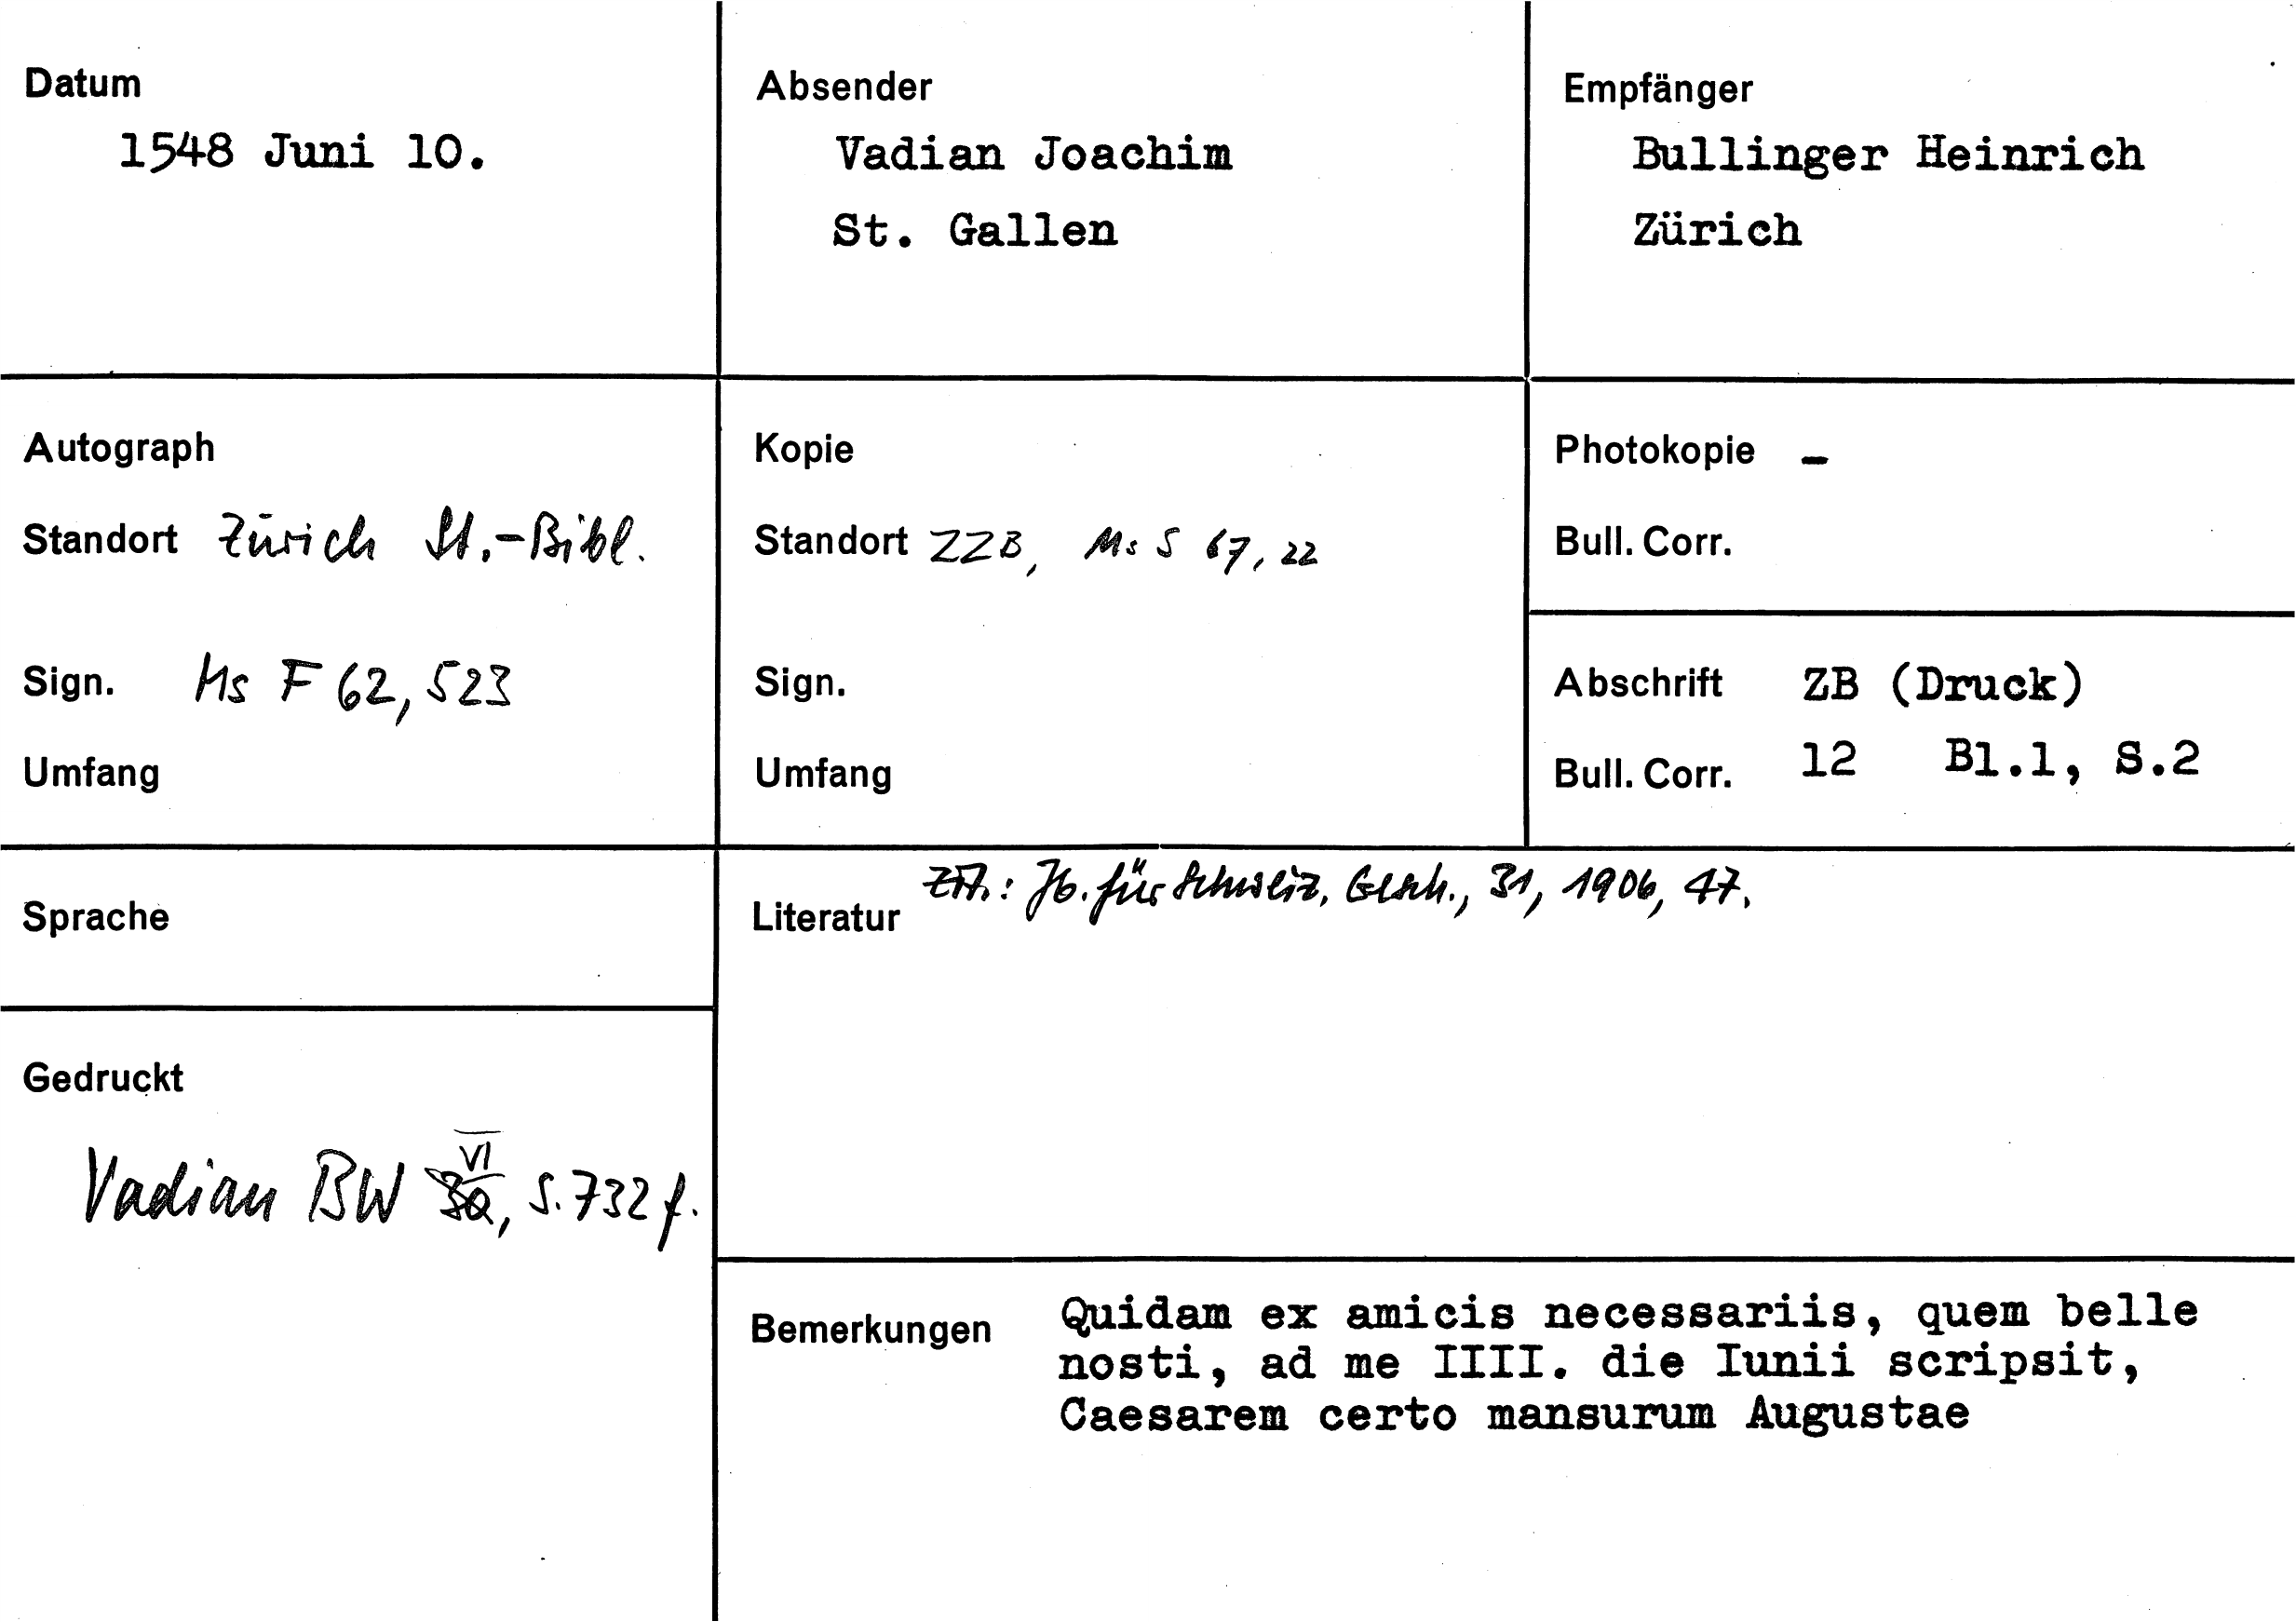 Datum
1548 Juni 10.
Absender
Vadian Joachim
St. Gallen
Empfänger
Bullinger Heinrich
Zürich
Autograph
Standort Zürich St.-Bibl.
Sign. Ms F 62, 523
Umfang
Kopie
Standort ZZB, Ms S 67, 22
Sign.
Umfang
Photokopie -
Bull. Corr.
Abschrift ZB (Druck)
Bull. Corr. 12 Bl.1, S.2
Sprache
Literatur Zit.: Jb. für Schweiz. Gesch., 31, 1906, 47.
Gedruckt
VI
Vadian BW 30, S. 732 f.
Bemerkungen Quidam ex amicis necessariis, quem belle
nosti, ad me IIII. die Iunii scripsit,
Caesarem certo mansurum Augustae